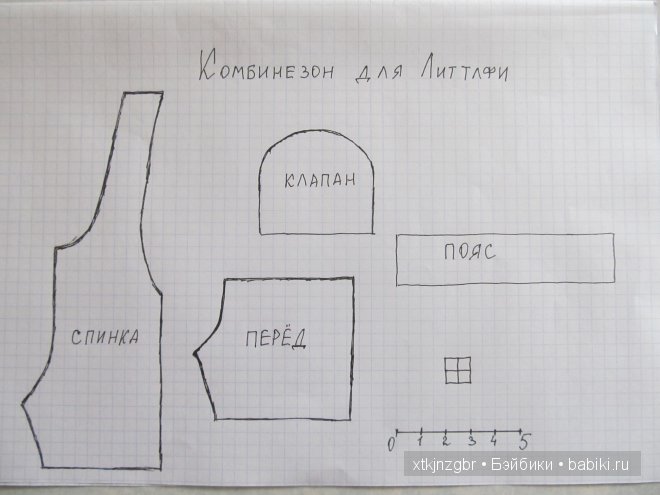 Комбинезон для Литтлфи
КЛАПАН
ПОЯС
СПИНКА
ПЕРЁД
0 1 2 3 4 5
xtkjnzgbr • Бэйбики • babiki.ru